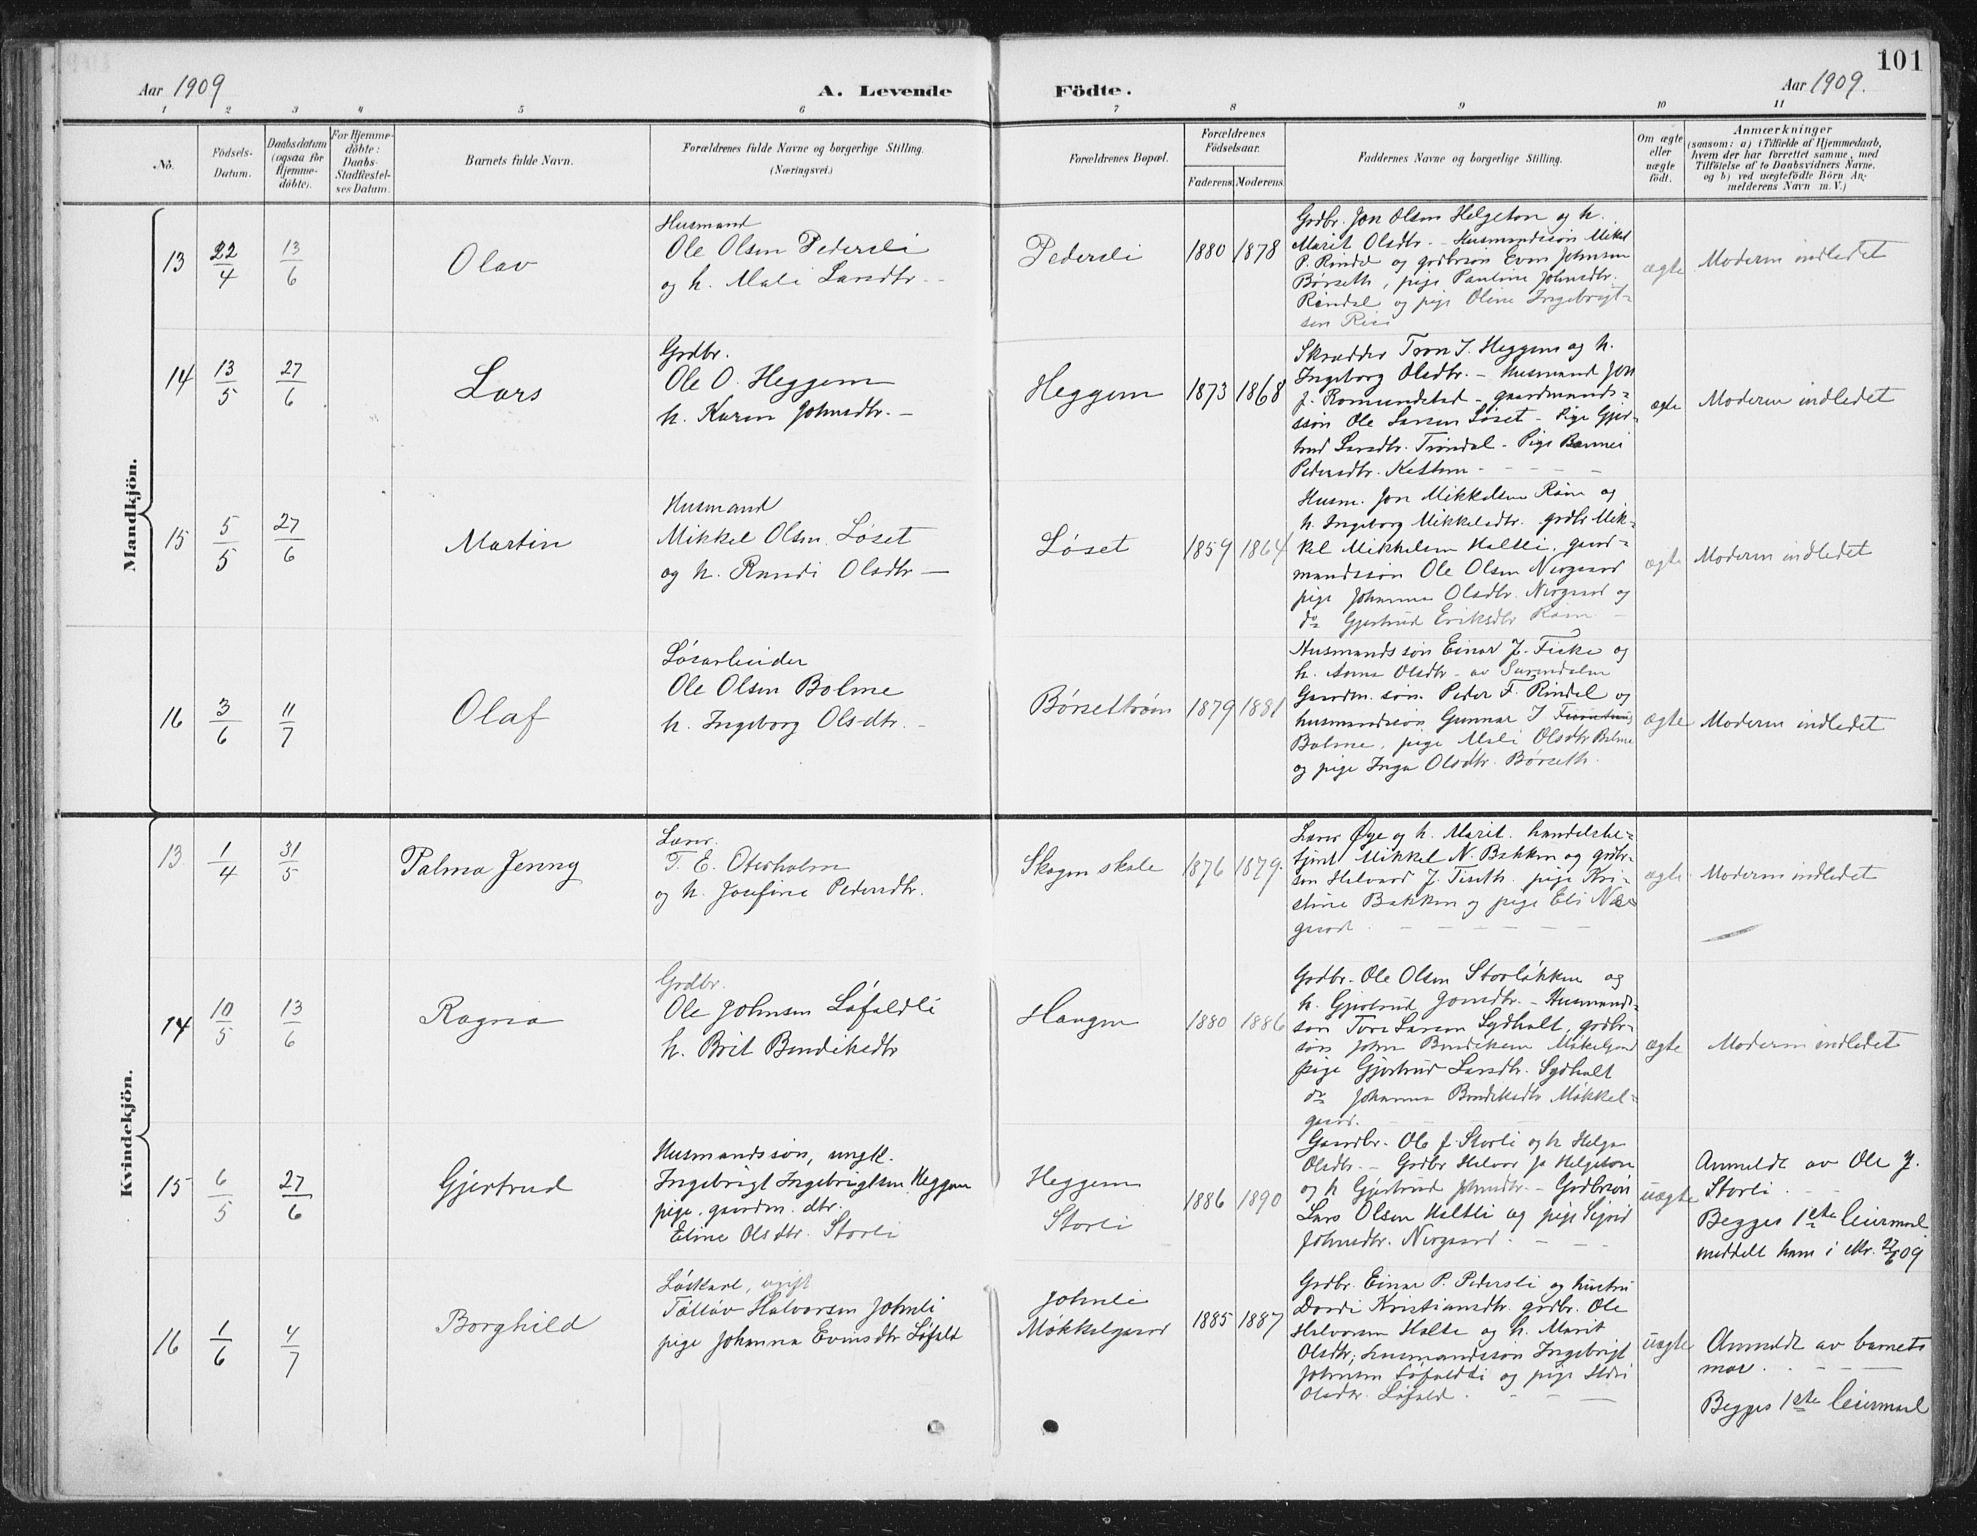 101
Aar 1909
A. Levende
Födte.
Aar 1909.
1 2 3 4 5 6 7 8 9 10 11
No.
Födsels-
Datum.
Daabsdatum
(ogsaa for
Hjemme-
döbte).
For Hjemme-
döbte:
Daabs-
Stadfæstel-
ses Datum.
Barnets fulde Navn.
Forældrenes fulde Navne og borgerlige Stilling.
(Næringsvei.)
Forældrenes Bopæl.
Forældrenes
Födselsaar.
Faderens Moderens
Faddernes Navne og borgerlige Stilling.
Om ægte
eller
uægte
födt.
Anmærkninger
(saasom: a) i Tilfælde af Hjemmedaab,
hvem der har forrettet samme, med
Tilföielse af to Daabsvidners Navne,
og b) ved uægtefödte Börn An-
melderens Navn m. V.)
Mandkjön.
13
22/4
13/6
Olav
Husmand
Ole Olsen Pedersli
og h. Mali Larsdtr.
Pedersli
1880 1878
Grdbr. Jon Olsen Helgeton og h.
Marit Olsdtr. - Husmandssön Mikal
P. Rindal og grdbrsön Even Johnsen
Børseth, pige Pauline Johnsdtr.
Rindal og pige Oline Ingebrigt-
sen
ægte
Moderen indledet
14
13/5
27/6
Lars
Grdbr.
Ole O. Heggem
h. Karen Johnsdtr. -
Heggem
1873 1868
Skrædder Tron I. Heggem og h.
Ingeborg Olsdtr. - Husmand Jon
J. Romundstad - gaardmands-
søn Ole Larsen Løset - Pige Gjer-
trud Larsdtr. Trøndal - Pige
Pedersdtr. Kattem -
ægte
Moderen indledet
15
5/5
27/6
Martin
Husmand
Mikkel Olsen Løset
og h. Randi Olsdtr -
Løset
1859 1864
Husm. Jon Mikkelsen Røen og
h. Ingeborg Mikkelsdtr. grdbr Mik-
kel Mikkelsen Haltli, gaard-
mandssøn Ole Olsen Nergaard
pige Johanna Olsdtr. Nergaard og
do Gjertrud Eriksdtr Røen
ægte
Moderen indledet
16
3/6
11/7
Olaf
Løsarbeider
Ole Olsen Bolme
h. Ingeborg Olsdtr. -
Børsettrøen
1879 1881
Husmandssøn Einar J. Fiske og
h. Anne Olsdtr - av Surendalen
Gaardm. søn Peder F. Rindal og
husmandssøn Gunnar I
Bolme, pige Mali Olsdtr Bolme
og pige Inga Olsdtr. Børseth.
ægte
Moderen indledet
Kvindekjön.
13
1/4
31/5
Palma Jenny
Lærer.
T. E. Oterholm
og h. Josefine Pedersdtr.
Skogen skole
1876 1879.
Lærer Øye og h. Marit. handelsbe-
tjent Mikkel N. Bakken og grdbr-
søn Halvard J. Tiseth. pige Kri-
stine Bakken og pige Eli Ner-
gaard.
ægte
Moderen indledet
14
10/5
13/6
Ragna
Grdbr.
Ole Johnsen Løfaldli
h. Brit Bendiksdtr
Haugen
1880 1886
Grdbr. Ole Olsen Storløkken og
h. Gjertrud Jonsdtr. - Husmands-
søn Tore Larsen Sydhalt, grdbr-
søn John Bendiksen Møkelgaard
pige Gjertrud Larsdtr. Sydhalt
do Johanna Bendiksdtr Møkkel-
gaard.
ægte
Moderen indledet
15
6/5
27/6
Gjertrud
Husmandssøn, ungk.
Ingebrigt Ingebrigtsen Heggem
pige. gaardm. dtr.
Eline Olsdtr. Storli
Heggem
Storli
1886 1890
Gaardbr. Ole J. Storli og h Helga
Olsdtr. - Grdbr Halvor Jo Helgeton
og h Gjertrud Johnsdtr. - Grdbrsøn
Lars Olsen Haltli og pige Sigrid
Johnsdtr. Nergaard. -
uægte
Anmeldt av Ole J.
Storli.
Begges 1ste leiermaal
meddelt ham i skr. 27/6 09
16
1/6
4/7
Borghild
Løskarl, ugift
Tøllav Halvorsen Johnli
pige Johanna Evensdtr Løfald
Johnli
Møkkelgaard
1885 1887
Grdbr. Einar P. Pedersli og hustru
Dordi Kristiansdtr. grdbr. Ole
Halvorsen Halte og h. Marit
Olsdtr; husmandssøn Ingebrigt
Johnsen Løfaldli og pige Ildri
Olsdtr. Løfald.
uægte
Anmeldt av barnets
mor.
Begges 1ste leiermaal